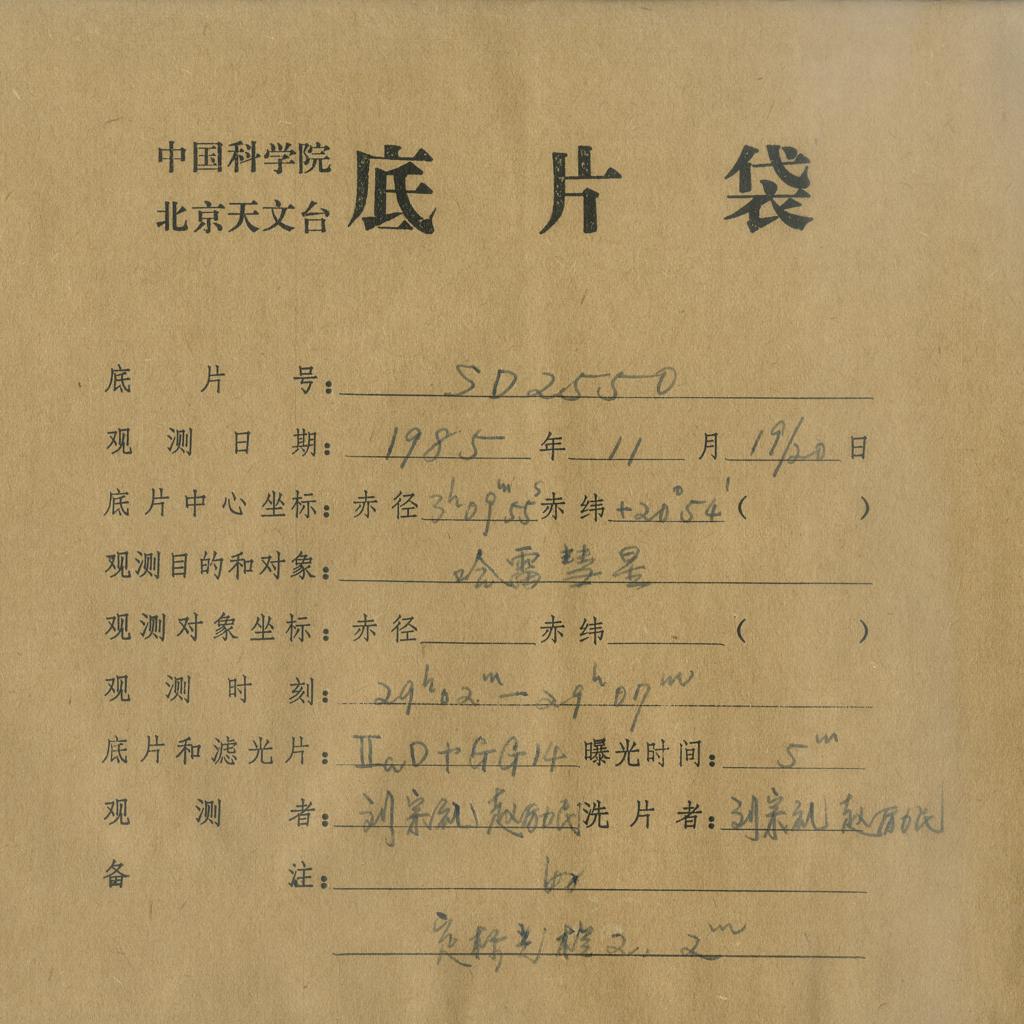 中国科学院
北京天文台
底片袋
底片号：SD2550
观测日期：1985年11月19/20日
底片中心坐标：赤径3ʰ09ᵐ55ˢ赤纬+20°54′（ ）
观测目的和对象：哈雷彗星
观测对象坐标：赤径 赤纬 （ ）
观测时刻：29ʰ02ᵐ—29ʰ07ᵐ
底片和滤光片：ⅡaD+GG14 曝光时间：5ᵐ
观测者：刘宗礼 赵励民 洗片者：刘宗礼 赵励民
备注：
定标光楔2，2ᵐ